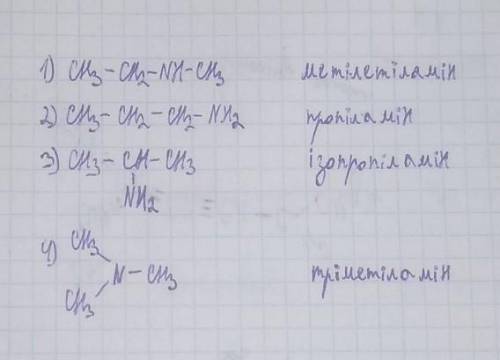 1) CH3 – CH2 – NH – CH3 метілетіламін
2) CH3 – CH2 – CH2 – NH2 пропіламін
3) CH3 – CH – CH3 ізопропіламін
NH2
4) CH3
N – CH3 триметіламін
CH3